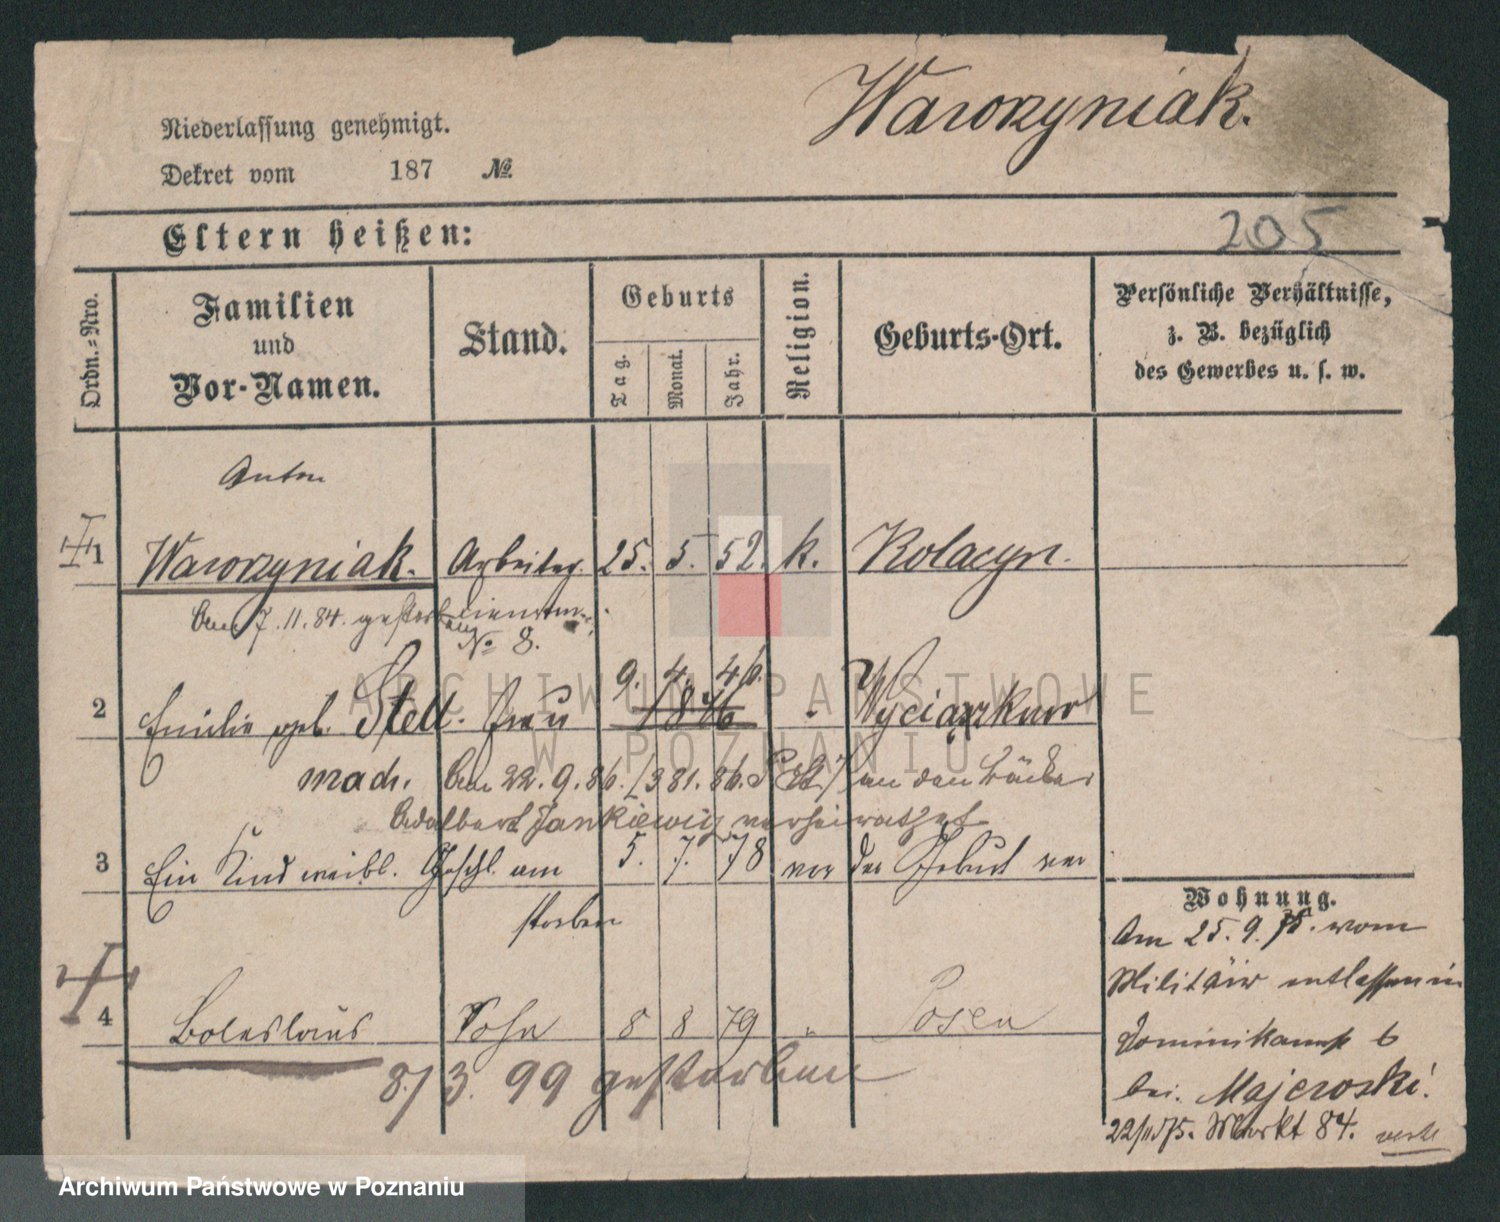 Wawrzyniak.
Niederlassung genehmigt.
Dekret vom 187 №.
Eltern heißen:
205
Ordn.-Nro.
Familien
und
Vor-Namen.
Stand.
Geburts
Tag.
Monat.
Jahr.
Religion.
Geburts-Ort.
Persönliche Verhältnisse,
z. B. bezüglich
des Gewerbes u. s. w.
Anton
1 Wawrzyniak. Arbeiter. 25. 5. 52. k.
Am 7.11.84. gestorben
№ 8.
9. 4. 46.
2 Emilie geb. Stell. Frau 1846
mod. Am 22.9.86. an den Bäcker
Adalbert Jankiewicz verheirathet
3 Ein Kind weibl. Geschl. am 5. 7. 78 vor der Geburt ver
storben
4 Boleslaus Sohn 8 8 79 " Posen
8/3. 99 gestorben
Wohnung.
Am 25.9.75. vom
Militair entlassen in
Dominikanst 6
bei. Majewski.
22/11/75. Markt 84.
ARCHIWUM PAŃSTWOWE
W POZNANIU
Archiwum Państwowe w Poznaniu